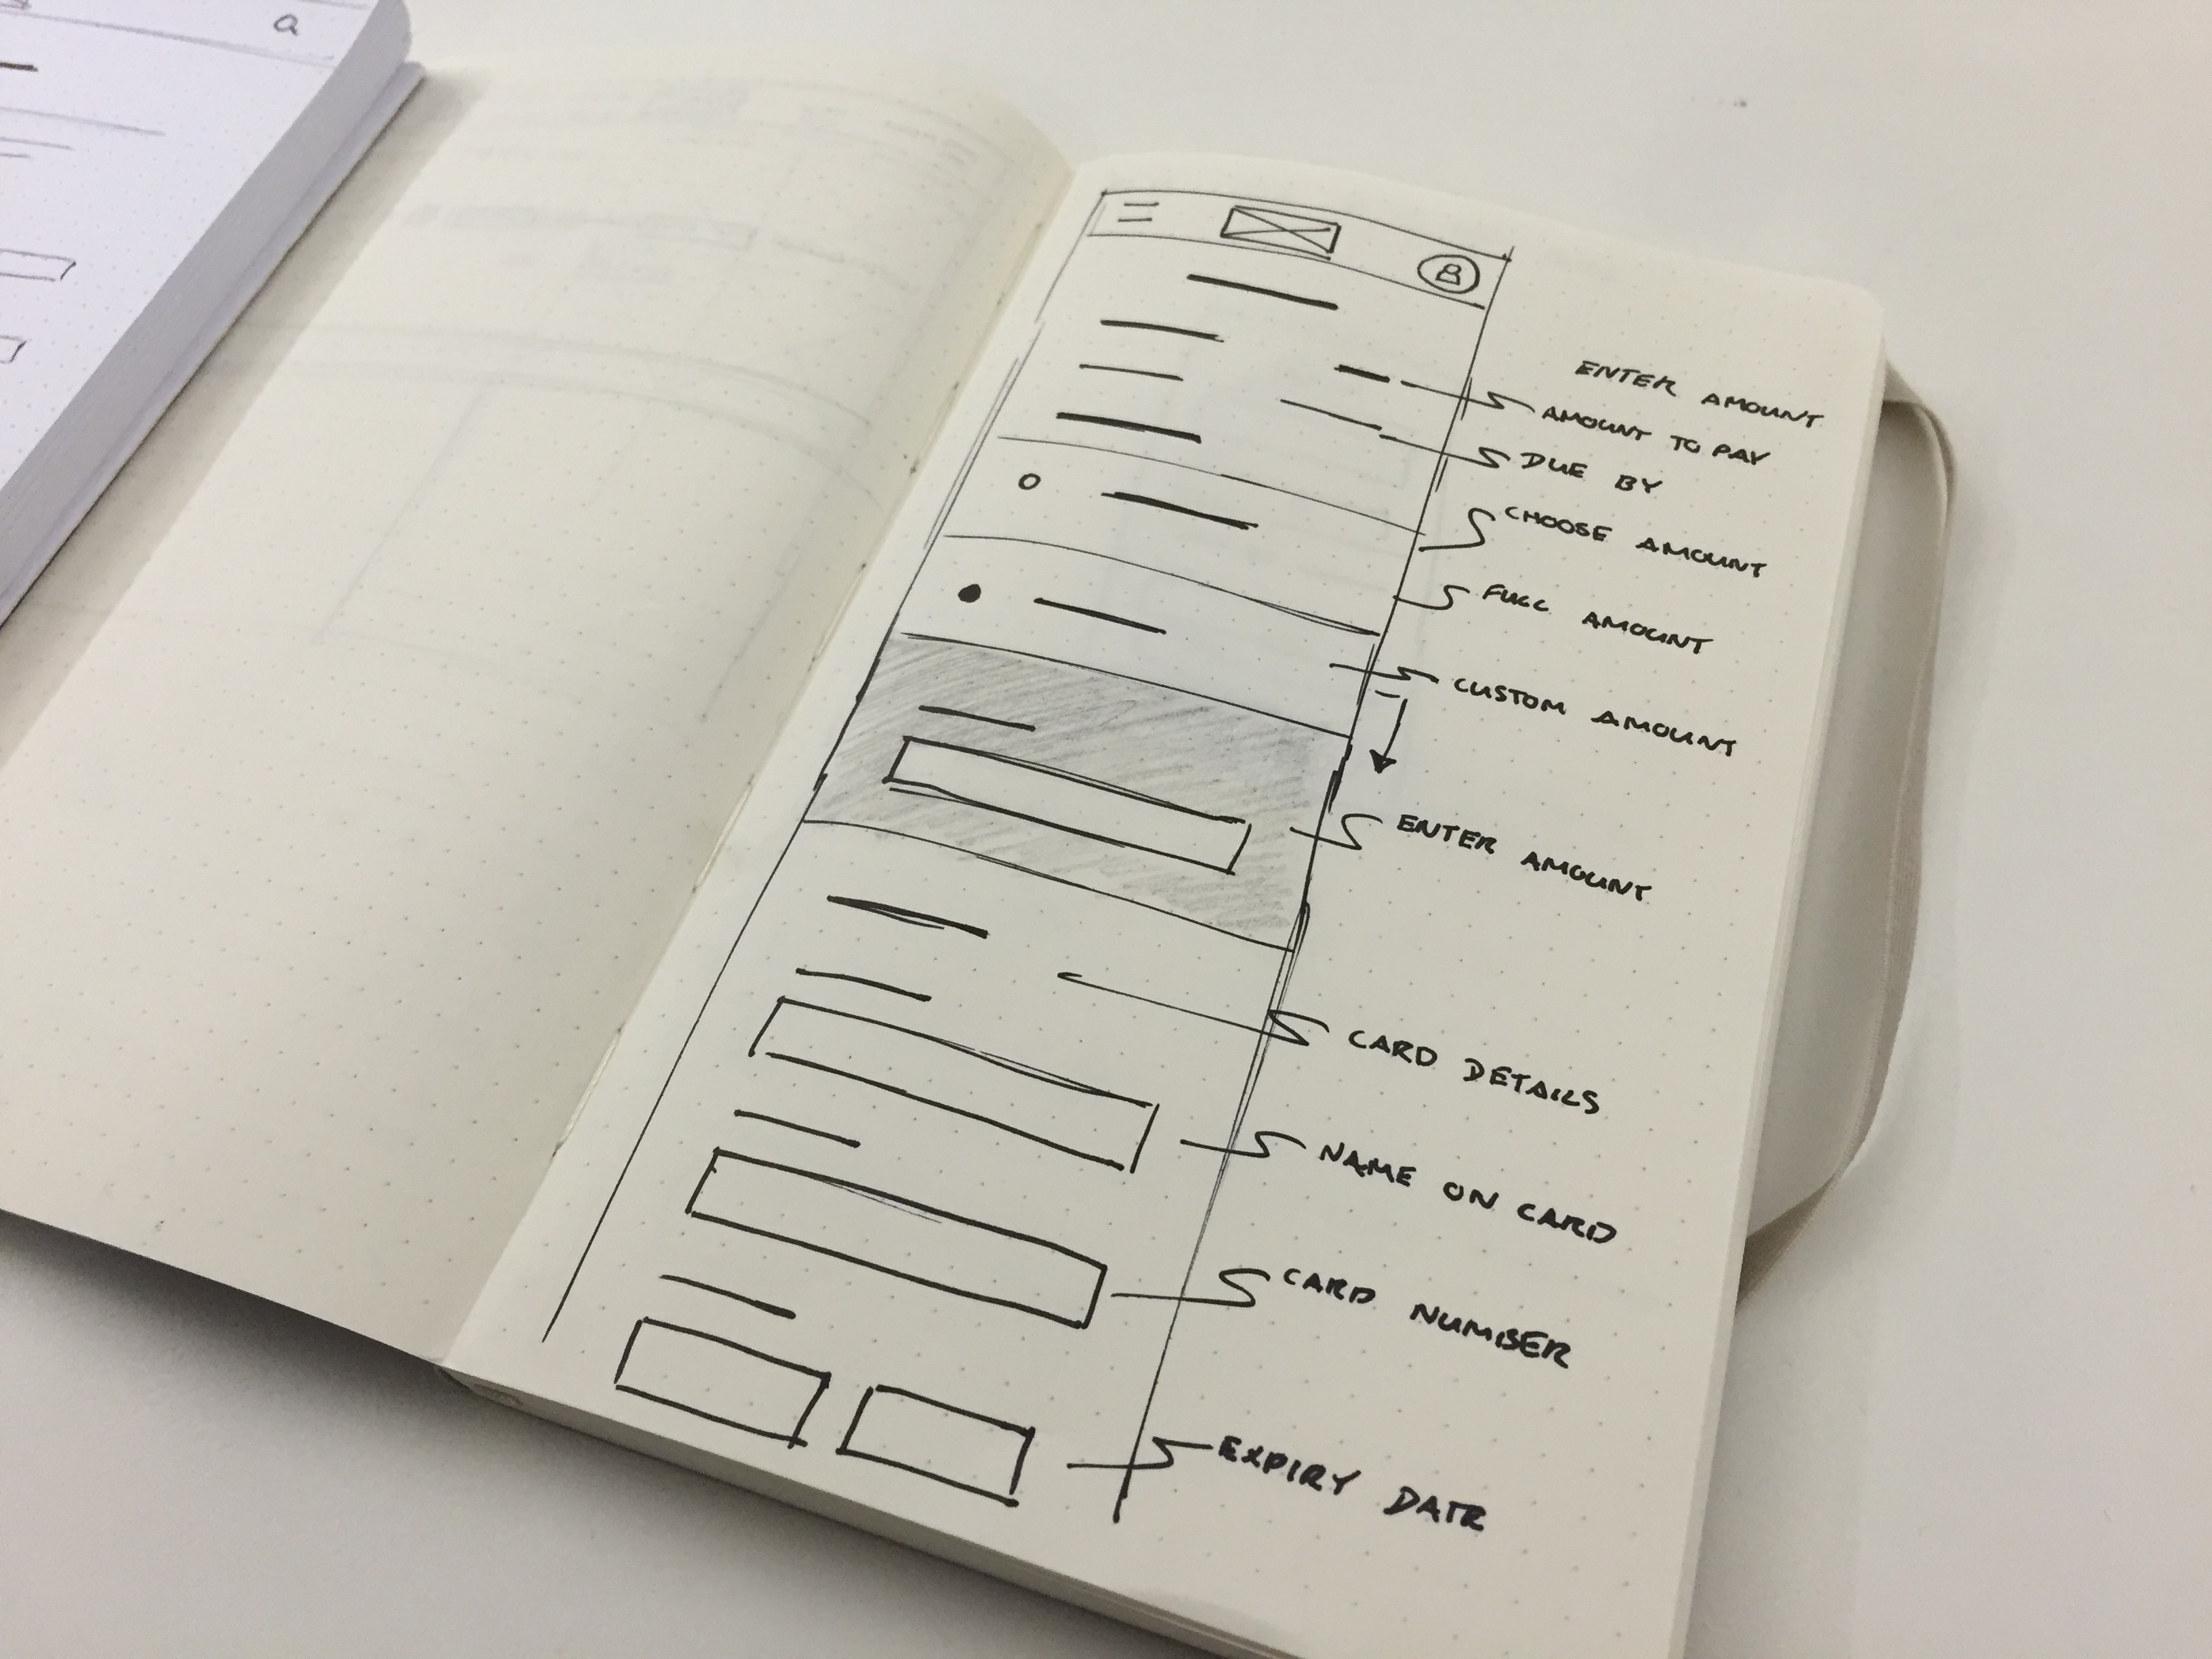 a
ENTER AMOUNT
AMOUNT TO PAY
DUE BY
CHOOSE AMOUNT
FULL AMOUNT
CUSTOM AMOUNT
ENTER AMOUNT
CARD DETAILS
NAME ON CARD
CARD NUMBER
EXPIRY DATE